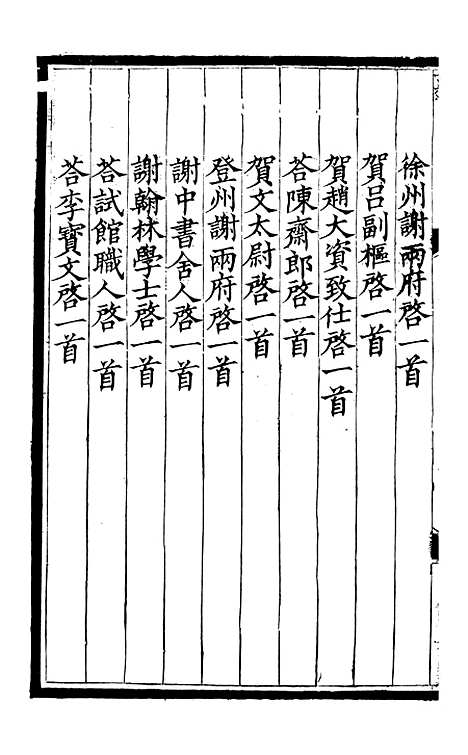 徐州謝兩府啓一首
賀吕副樞啓一首
賀趙大資致仕啓一首
荅陳齋郎啓一首
賀文太尉啓一首
登州謝兩府啓一首
謝中書舍人啓一首
謝翰林學士啓一首
荅試館職人啓一首
荅李寶文啓一首